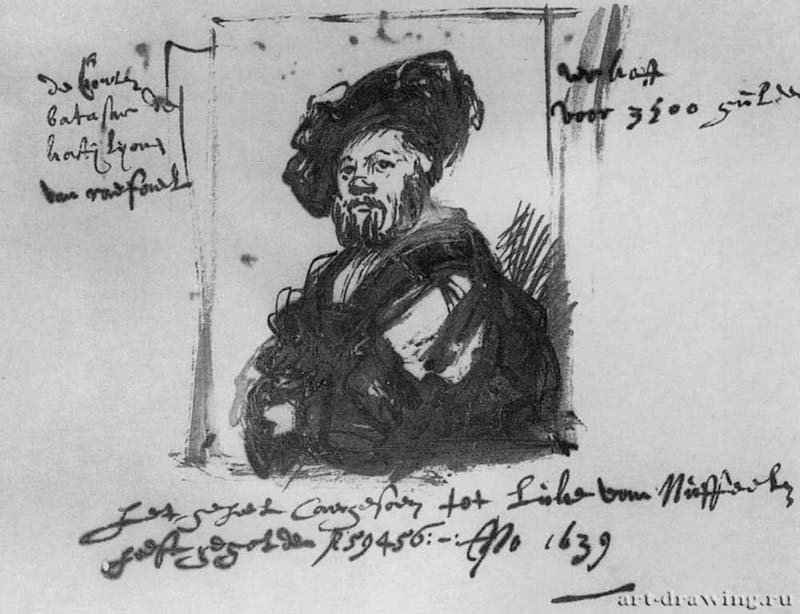 de Conte
batasar de
kastijlijone
van raefael
verkoft
voor 3500 gulden
het geheel Caergesoen tot Lucke van Nuffeelen
heeft gegolden f59456:-: Ano 1639
art-drawing.ru